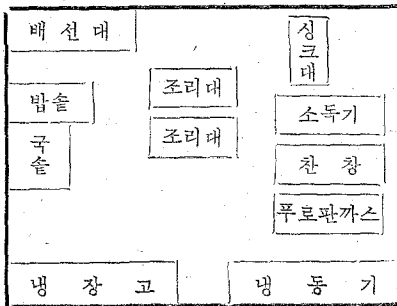 배선대
싱크대
밥솥
조리대
소독기
국솥
조리대
찬창
푸로판까스
냉장고
냉동기